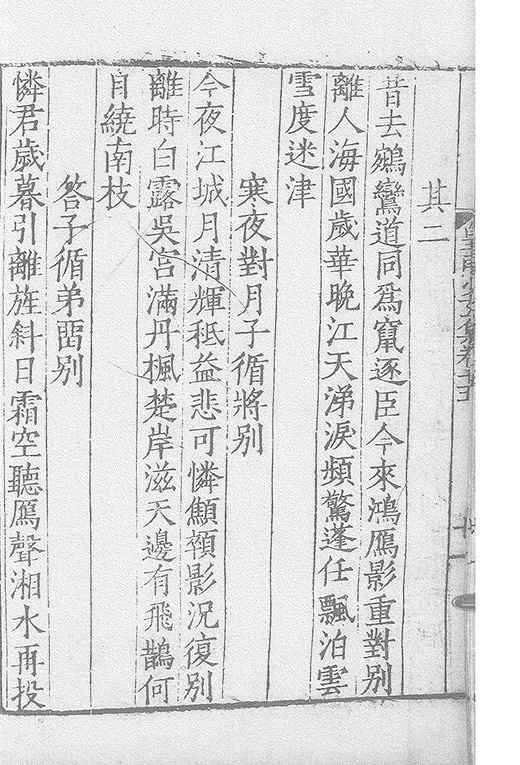 其二
昔去鵷鸞道同爲竄逐臣今來鴻鴈影重對别
離人海國歲華晚江天涕淚頻驚蓬任飄泊雲
雪度迷津
寒夜對月子循將别
今夜江城月清輝秪益悲可憐顦顇影況復别
離時白露吳宮滿丹楓楚岸滋天邊有飛鵲何
自繞南枝
答子循弟畱别
憐君歲暮引離旌斜日霜空聽鴈聲湘水再投